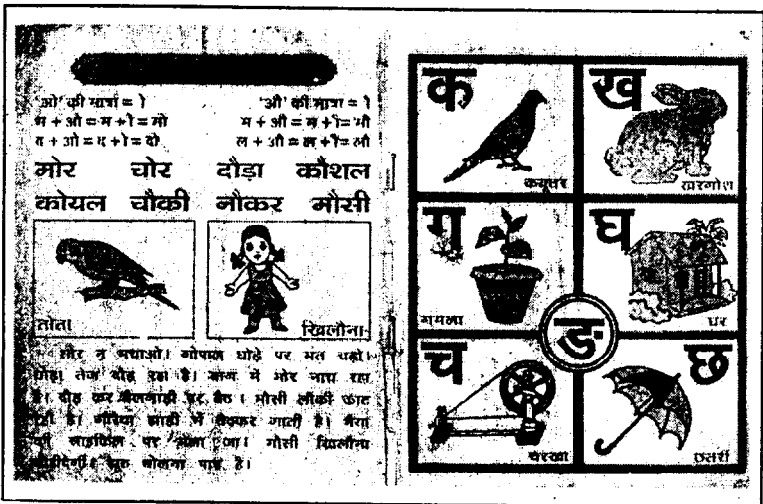 'ओ' की मात्रा = ो
'औ' की मात्रा = ौ
म + ओ = म + ो = मो
म + औ = म + ौ = मौ
द + ओ = द + ो = दो
ल + औ = ल + ौ = लौ
मोर चोर दौड़ा कौशल
कोयल चौकी नौकर मौसी
तोता
खिलौना
शोर न मचाओ। गोपाल घोड़े पर मत चढ़ो।
घोड़ा तेज दौड़ रहा है। बाग में मोर नाच रहा
है। दौड़ कर बैलगाड़ी पर बैठ। मौसी लौकी काट
रही है। गौरैया झाड़ी में बैठकर गाती है। भैया
की साइकिल पर बैठ जा। मौसी खिलौना
बोलना पाप है।
क
कबूतर
ख
खरगोश
ग
गमला
घ
घर
ङ
च
चरखा
छ
छतरी